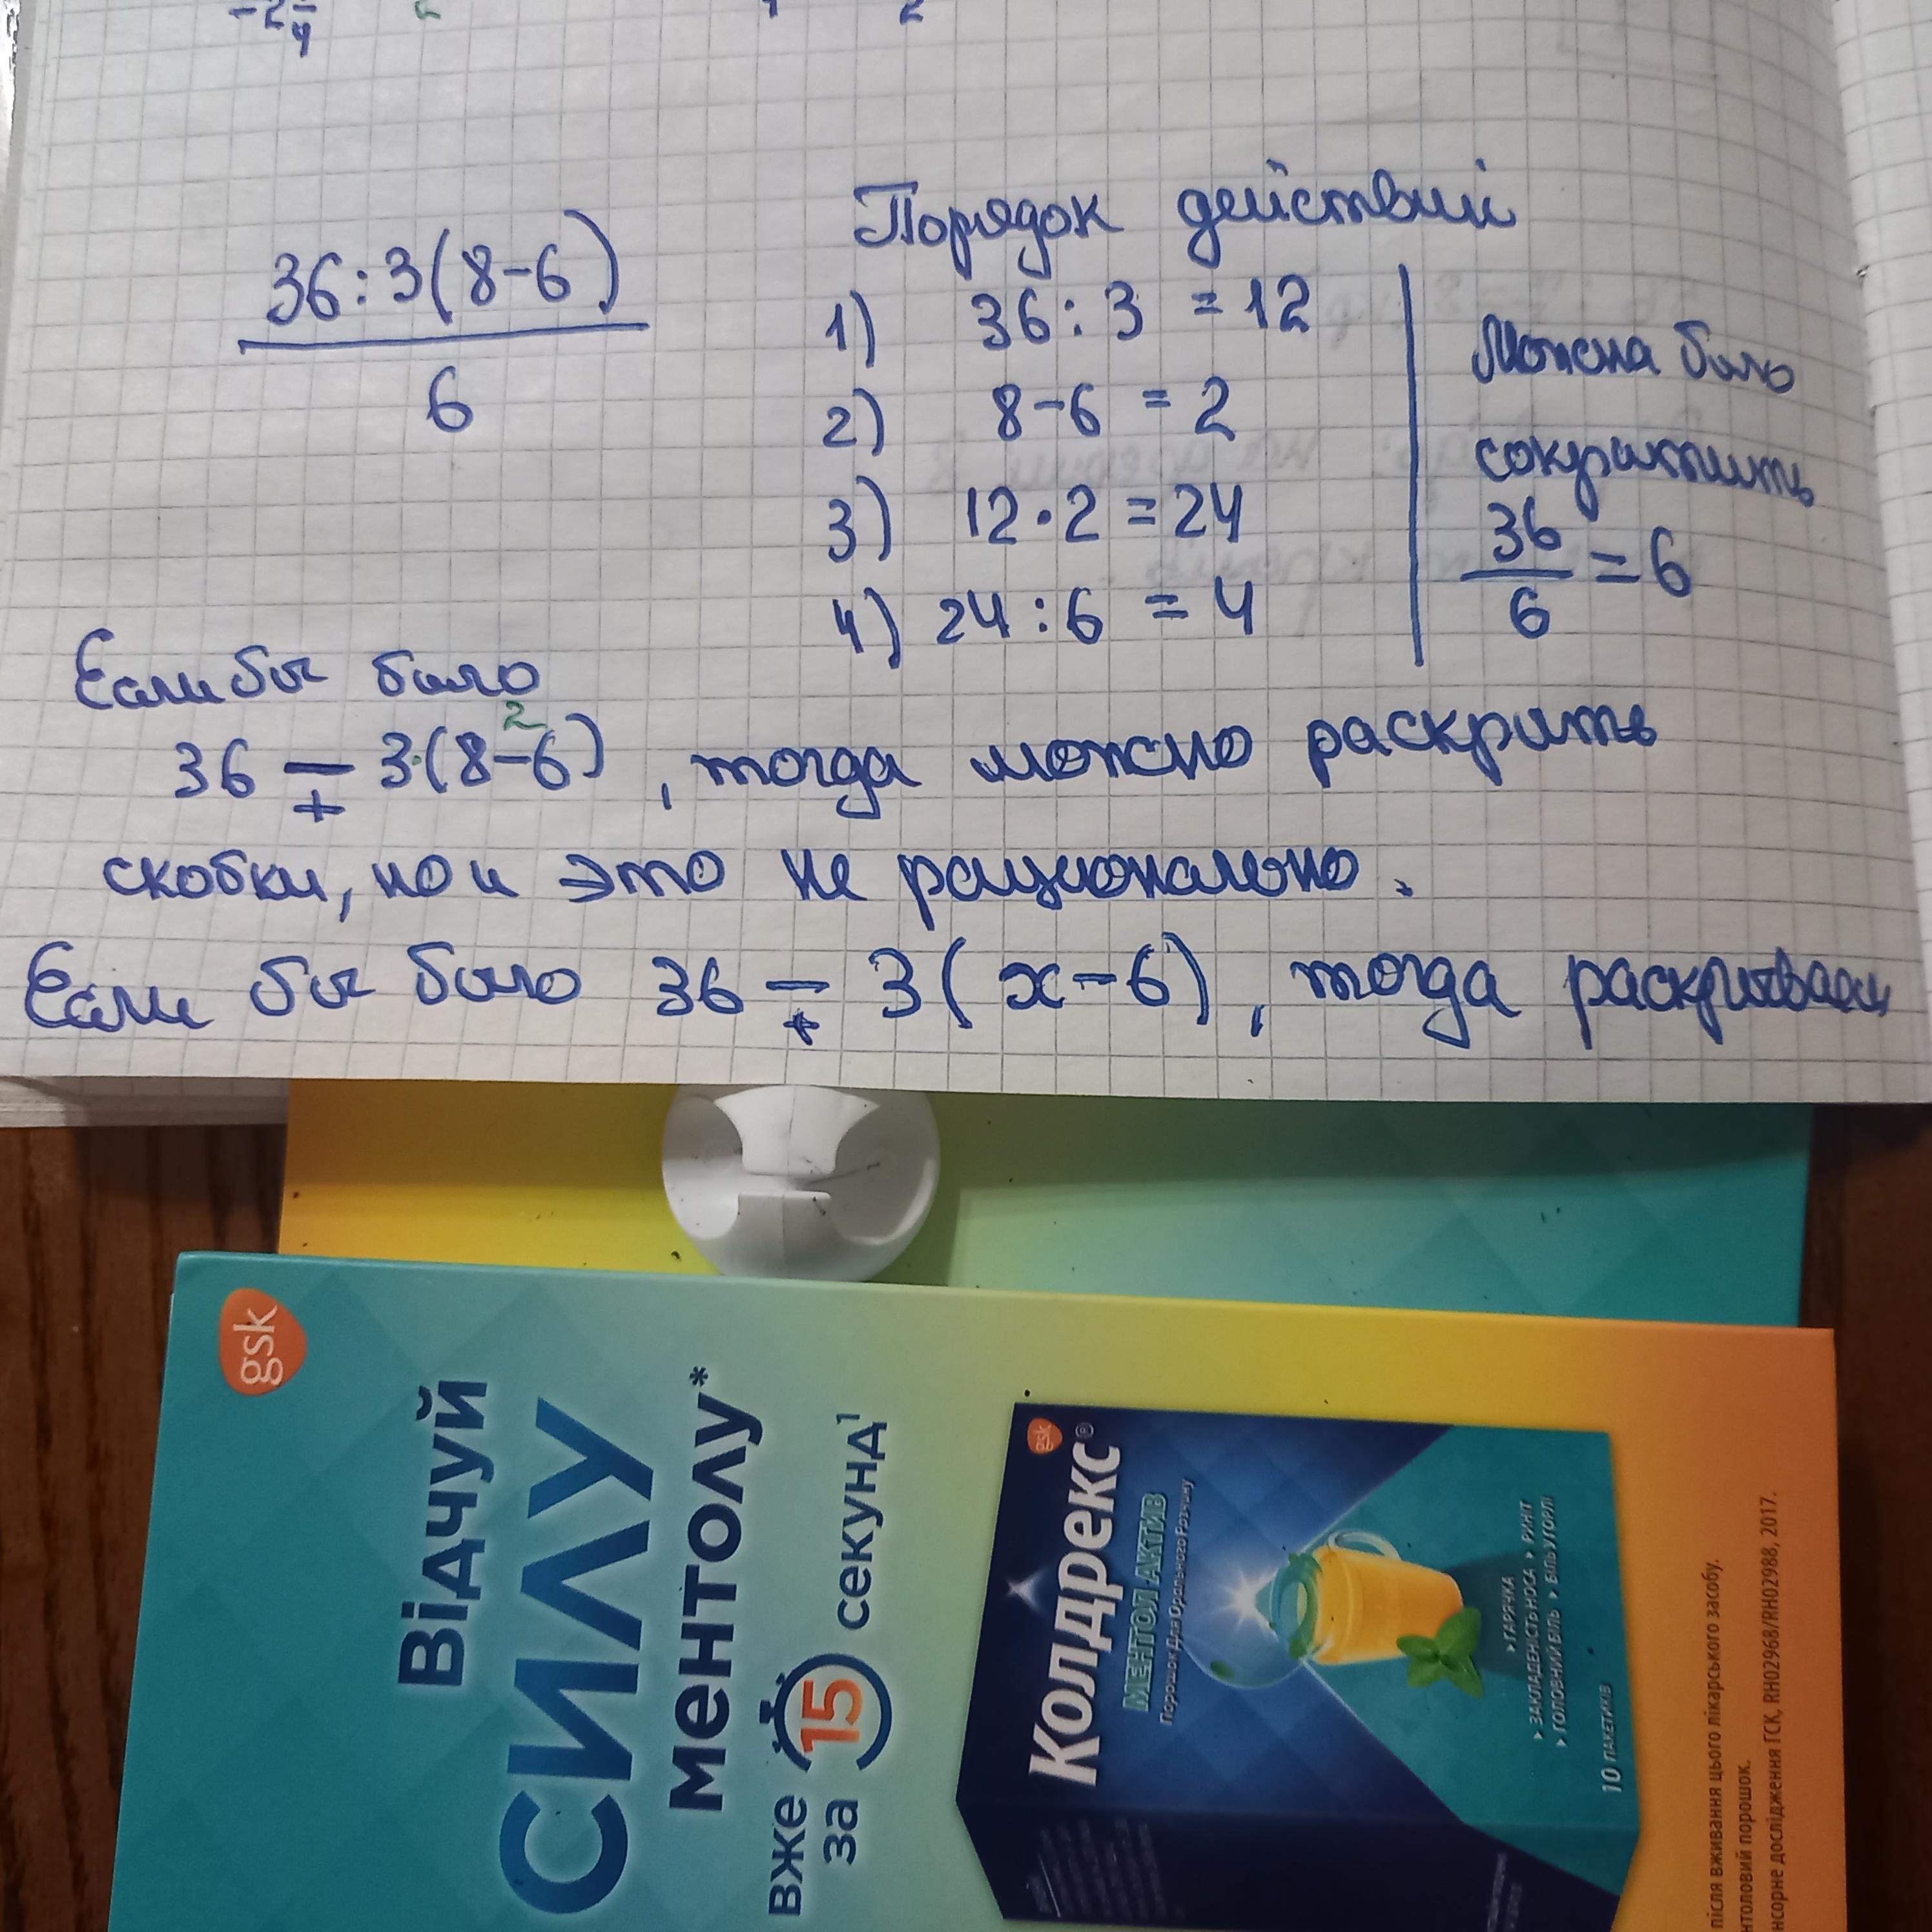 36:3(8-6)
6
Порядок действий
1) 36:3 = 12
2) 8-6 = 2
3) 12·2 = 24
4) 24:6 = 4
Можна было
сократить
36/6 = 6
Если бы было
2
36 - 3·(8-6), тогда можно раскрыть
+
скобки, но и это не рационально.
Если бы было 36 - 3(x-6), тогда раскрываем
+
gsk
Відчуй
СИЛУ
ментолу*
вже за 15 секунд¹
gsk
Колдрекс®
МЕНТОЛ АКТИВ
Порошок Для Орального Розчину
ГАРЯЧКА
ЗАКЛАДЕНІСТЬ НОСА РИНІТ
ГОЛОВНИЙ БІЛЬ БІЛЬ У ГОРЛІ
10 ПАКЕТИКІВ
після вживання цього лікарського засобу.
порошок.
дослідження ГСК, RH02968/RH02988, 2017.